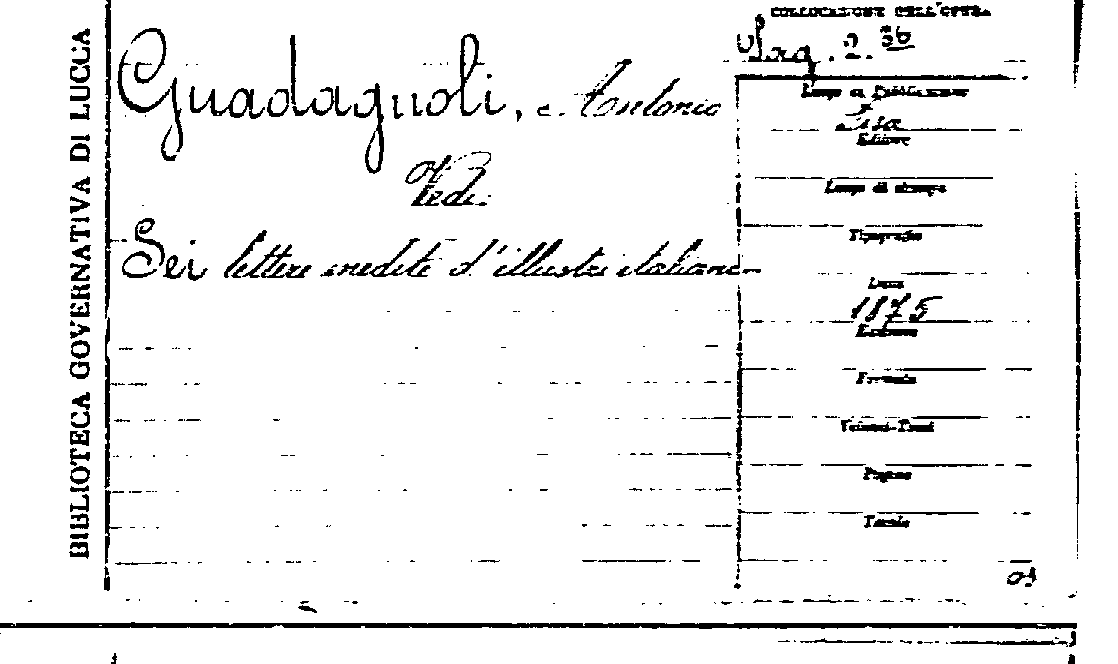 BIBLIOTECA GOVERNATIVA DI LUCCA
Guadagnoli, Antonio
Vedi:
Sei lettere inedite d'illustri italiani
COLLOCAZIONE DELL'OPERA
2. 36
Luogo di Pubblicazione
Pisa
Editore
Luogo di stampa
Tipografia
Data
1875
Edizione
Formato
Volumi-Tomi
Pagine
Tavole